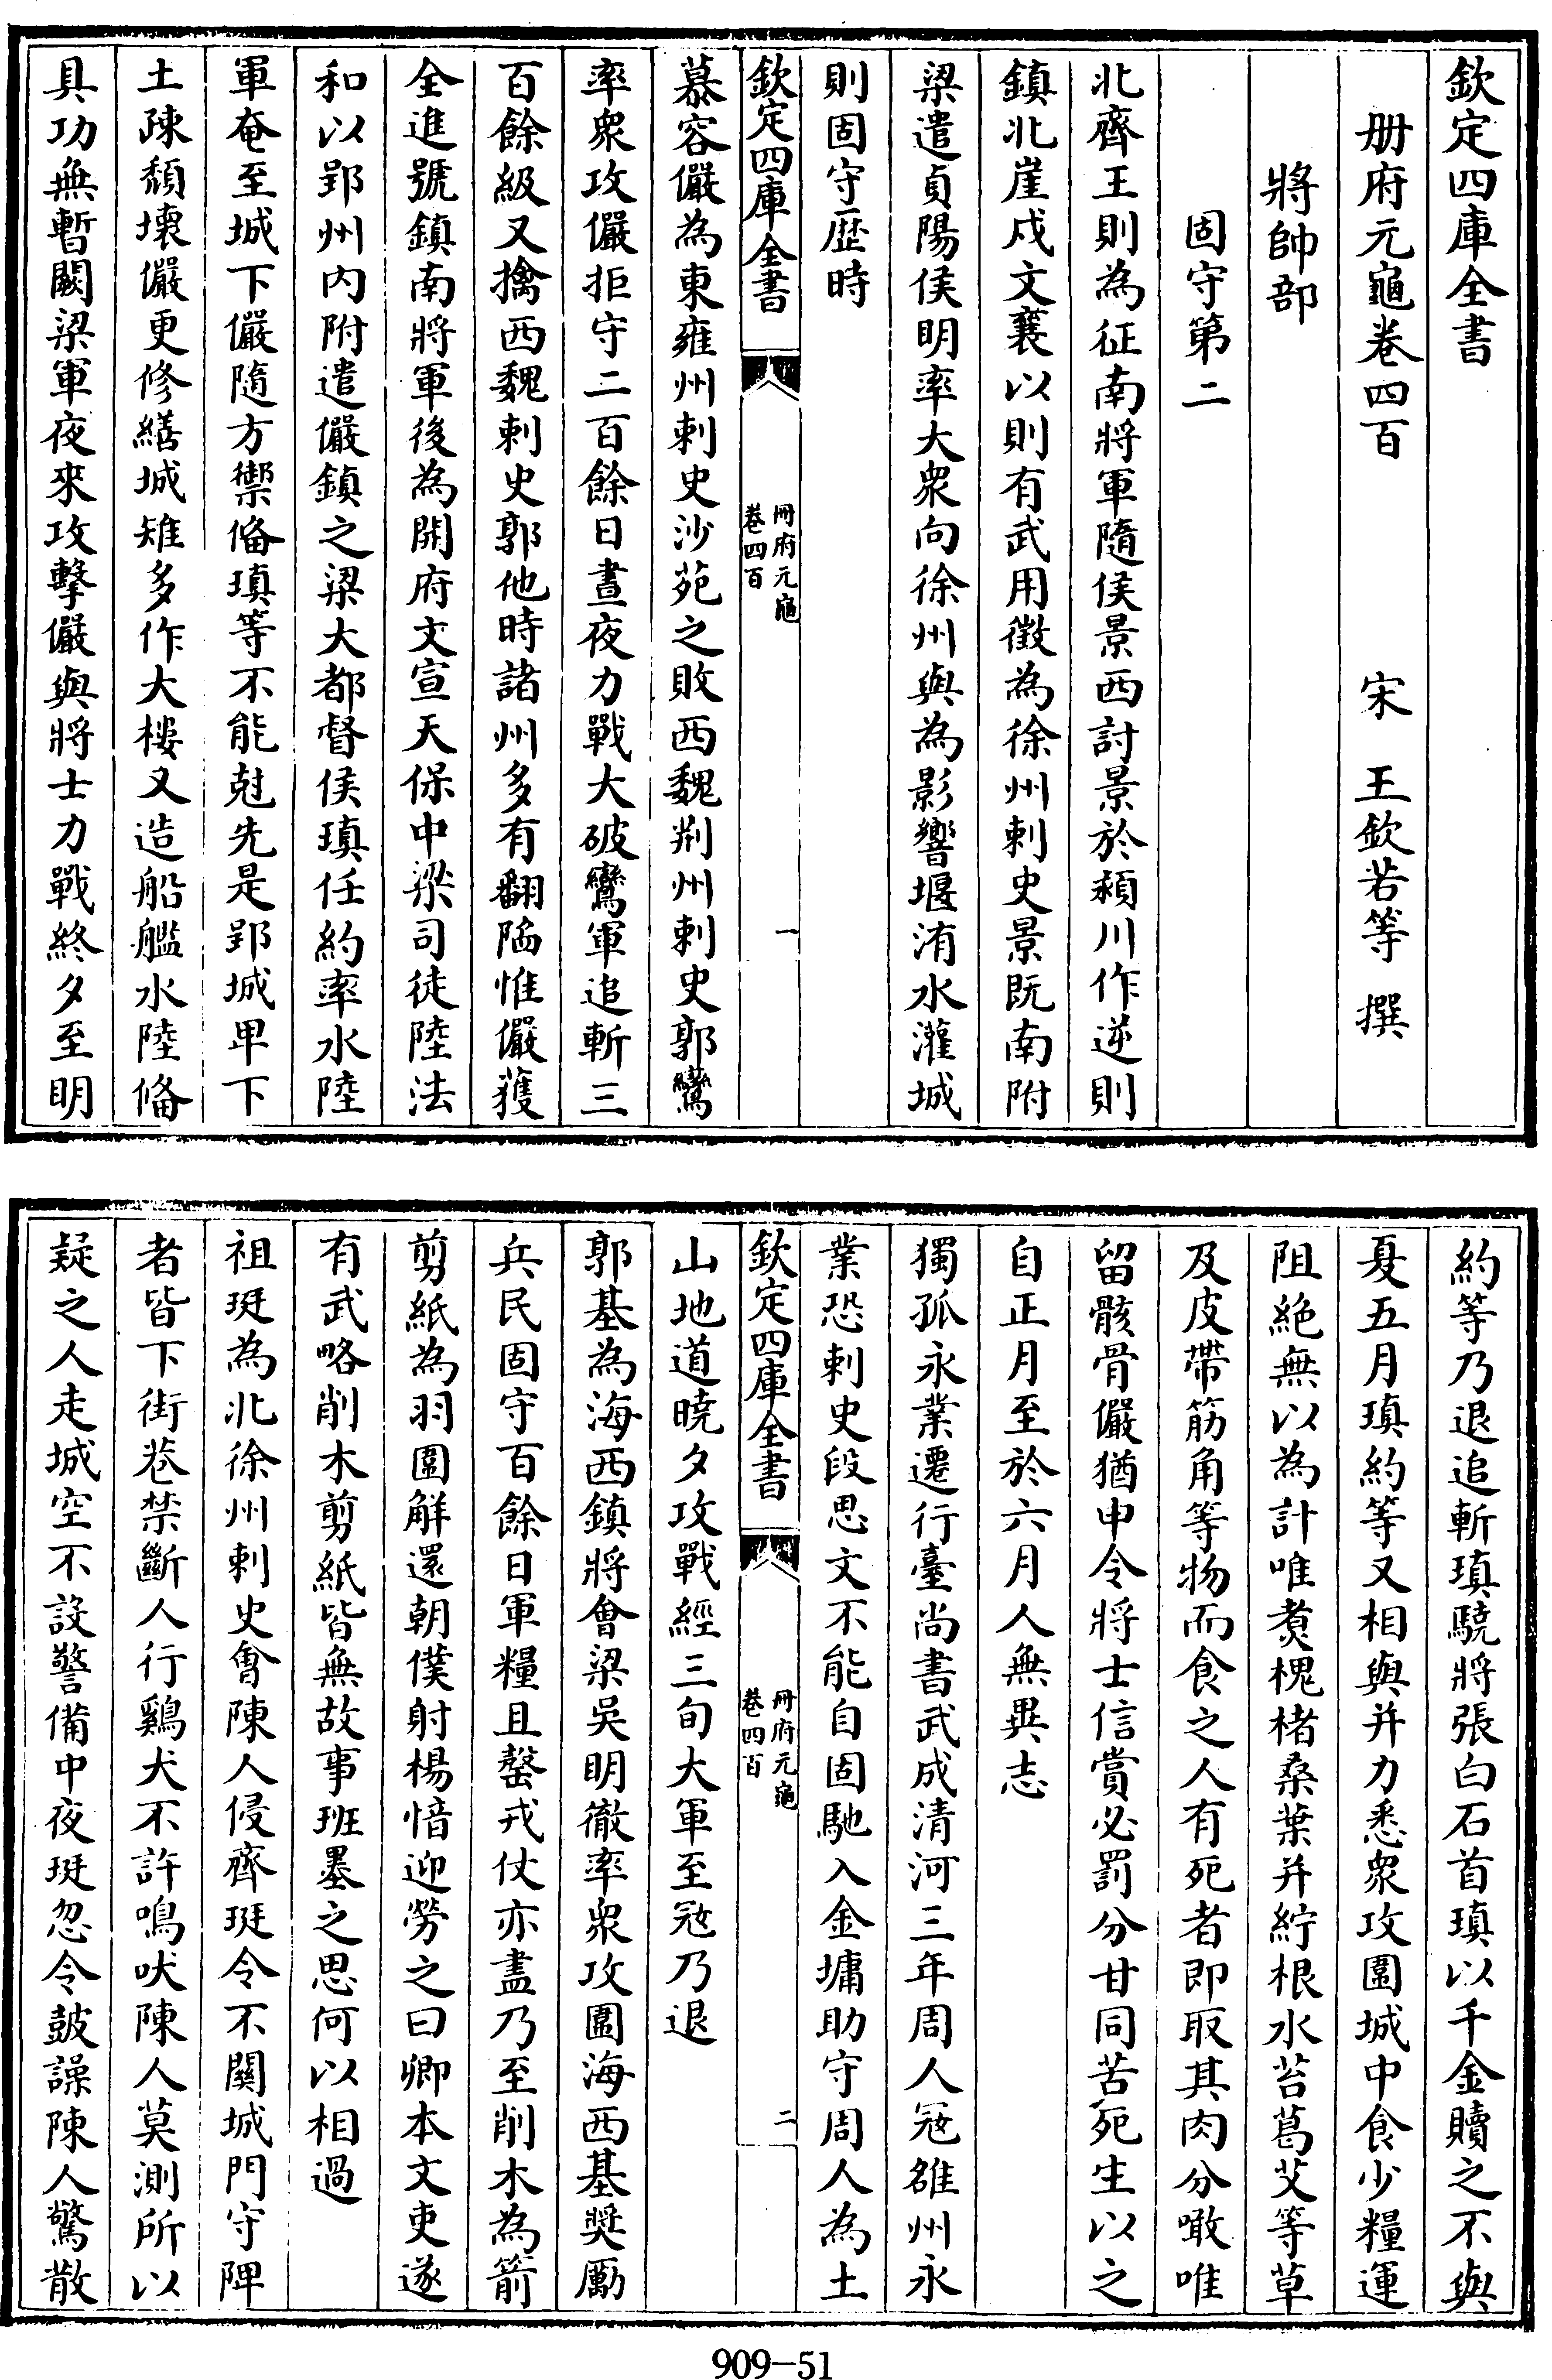 欽定四庫全書
册府元龜卷四百　宋　王欽若等　撰
將帥部
固守第二
北齊王則為征南將軍隨侯景西討景於潁川作逆則
鎮北崖戍文襄以則有武用徵為徐州刺史景既南附
梁遣貞陽侯明率大衆向徐州與為影響堰洧水灌城
則固守歴時
欽定四庫全書　冊府元龜　卷四百　一
慕容儼為東雍州刺史沙苑之敗西魏荆州刺史郭鸞
率衆攻儼拒守二百餘日晝夜力戰大破鸞軍追斬三
百餘級又擒西魏刺史郭他時諸州多有翻陷惟儼獲
全進號鎮南將軍後為開府文宣天保中梁司徒陸法
和以郢州内附遣儼鎮之梁大都督侯瑱任約率水陸
軍奄至城下儼隨方禦備瑱等不能尅先是郢城卑下
土疎頽壞儼更修繕城雉多作大樓又造船艦水陸備
具功無暫闕梁軍夜來攻擊儼與將士力戰終夕至明
約等乃退追斬瑱驍將張白石首瑱以千金贖之不與
夏五月瑱約等又相與并力悉衆攻圍城中食少糧運
阻絶無以為計唯煑槐楮桑葉并紵根水苔葛艾等草
及皮帶筋角等物而食之人有死者即取其肉分噉唯
留骸骨儼猶申令將士信賞必罰分甘同苦死生以之
自正月至於六月人無異志
獨孤永業遷行臺尚書武成清河三年周人寇雒州永
業恐刺史段思文不能自固馳入金墉助守周人為土
欽定四庫全書　冊府元龜　卷四百　二
山地道曉夕攻戰經三旬大軍至寇乃退
郭基為海西鎮將會梁吳明徹率衆攻圍海西基奬勵
兵民固守百餘日軍糧且罄戎仗亦盡乃至削木為箭
剪紙為羽圍解還朝僕射楊愔迎勞之曰卿本文吏遂
有武略削木剪紙皆無故事班墨之思何以相過
祖珽為北徐州刺史會陳人侵齊珽令不闗城門守陴
者皆下街巷禁斷人行鷄犬不許鳴吠陳人莫測所以
疑之人走城空不設警備中夜珽忽令鼓譟陳人驚散
909-51